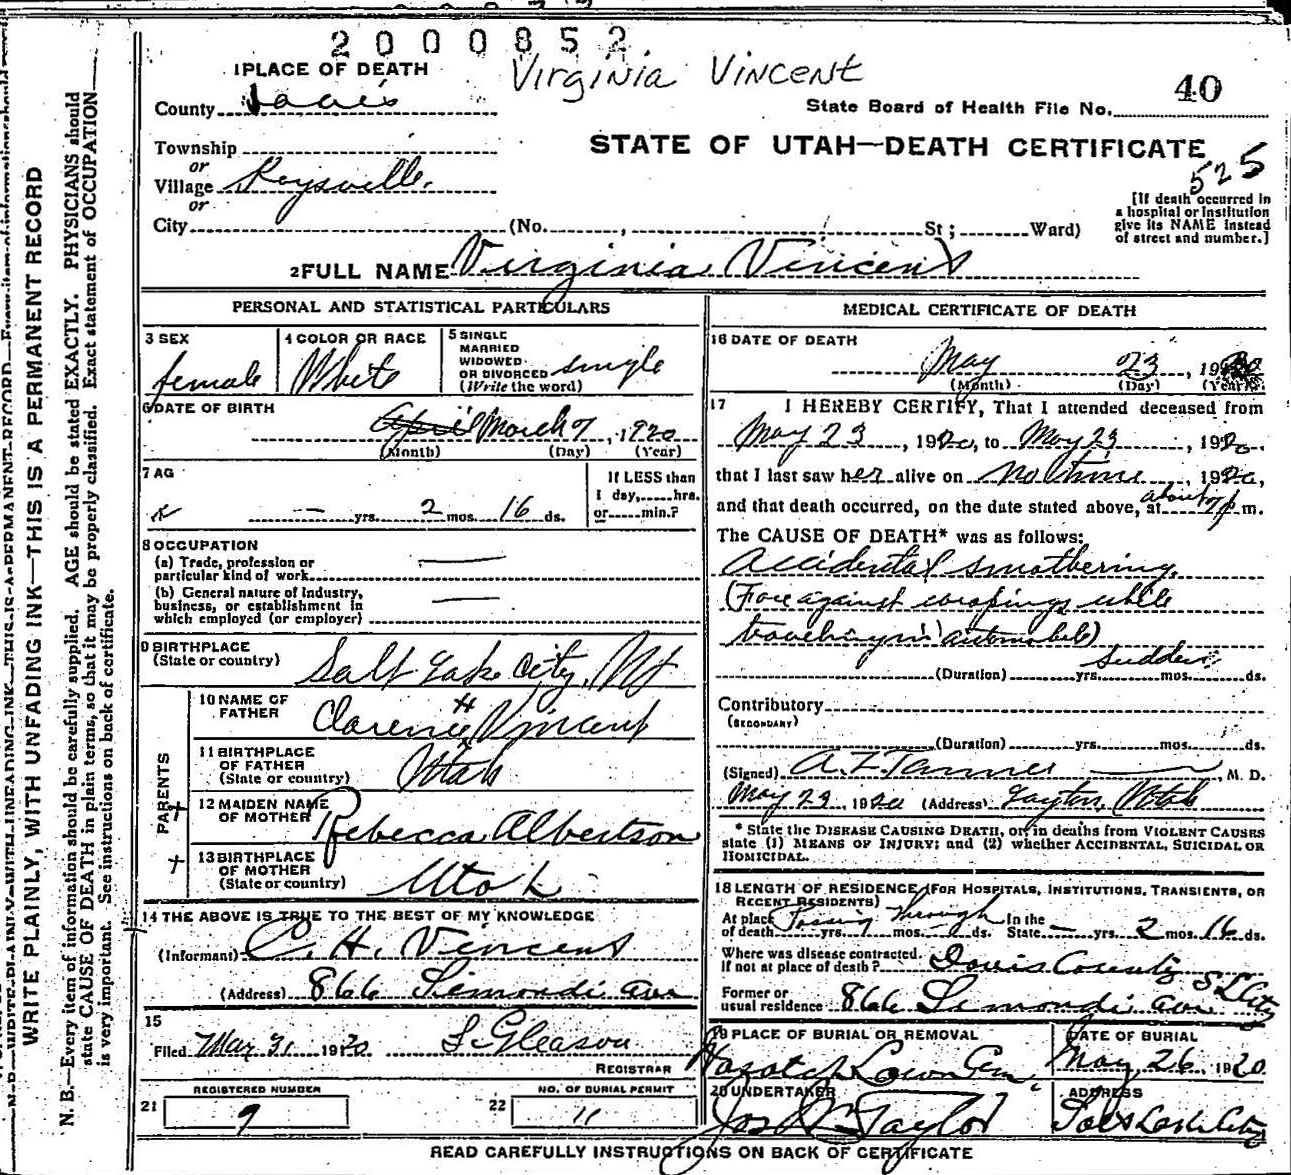 2000852
Virginia Vincent
1 PLACE OF DEATH
40
County Davis
State Board of Health File No.
Township
STATE OF UTAH—DEATH CERTIFICATE
or
525
Village Kaysville.
or
City (No. , St; Ward)
[If death occurred in
a hospital or institution
give its NAME instead
of street and number.]
2 FULL NAME Virginia Vincent
PERSONAL AND STATISTICAL PARTICULARS
3 SEX
female
4 COLOR OR RACE
White
5 SINGLE
MARRIED
WIDOWED
OR DIVORCED
(Write the word)
single
6 DATE OF BIRTH
April March 7, 1920
(Month) (Day) (Year)
7 AG
— yrs. 2 mos. 16 ds.
If LESS than
1 day, hrs.
or min.?
8 OCCUPATION
(a) Trade, profession or
particular kind of work
(b) General nature of Industry,
business, or establishment in
which employed (or employer)
9 BIRTHPLACE
(State or country) Salt Lake City, Ut
PARENTS
10 NAME OF
FATHER Clarence H Vincent
11 BIRTHPLACE
OF FATHER
(State or country) Utah
12 MAIDEN NAME
OF MOTHER Rebecca Albertson
13 BIRTHPLACE
OF MOTHER
(State or country) Utah
14 THE ABOVE IS TRUE TO THE BEST OF MY KNOWLEDGE
(Informant) C. H. Vincent
(Address) 866 Simondi ave
15
Filed May 31 1920 S Gleason
REGISTRAR
REGISTERED NUMBER
21 9
NO. OF BURIAL PERMIT
22 11
MEDICAL CERTIFICATE OF DEATH
16 DATE OF DEATH
May 23, 1920
(Month) (Day) (Year)
17 I HEREBY CERTIFY, That I attended deceased from
May 23, 1920, to May 23, 1920.
that I last saw her alive on no time, 1920,
and that death occurred, on the date stated above, at about 7 p m.
The CAUSE OF DEATH* was as follows:
Accidental smothering.
(Face against wrappings while
traveling in automobile)
sudden
(Duration) yrs. mos. ds.
Contributory
(SECONDARY)
(Duration) yrs. mos. ds.
(Signed) A Z Tanner, M. D.
May 29, 1920 (Address) Layton, Utah
* State the DISEASE CAUSING DEATH, or, in deaths from VIOLENT CAUSES
state (1) MEANS OF INJURY; and (2) whether ACCIDENTAL, SUICIDAL OR
HOMICIDAL.
18 LENGTH OF RESIDENCE (FOR HOSPITALS, INSTITUTIONS, TRANSIENTS, OR
RECENT RESIDENTS)
At place Passing through In the
of death yrs. mos. ds. State — yrs. 2 mos. 16 ds.
Where was disease contracted.
If not at place of death? Davis County
Former or
usual residence 866 Simondi ave. S L City
19 PLACE OF BURIAL OR REMOVAL
Wasatch Lawn Cem.
DATE OF BURIAL
May 26, 1920.
20 UNDERTAKER
Jos Wm Taylor
ADDRESS
Salt Lake City
READ CAREFULLY INSTRUCTIONS ON BACK OF CERTIFICATE
WRITE PLAINLY, WITH UNFADING INK—THIS IS A PERMANENT RECORD
N. B.—Every item of information should be carefully supplied. AGE should be stated EXACTLY. PHYSICIANS should
state CAUSE OF DEATH in plain terms, so that it may be properly classified. Exact statement of OCCUPATION
is very important. See instructions on back of certificate.